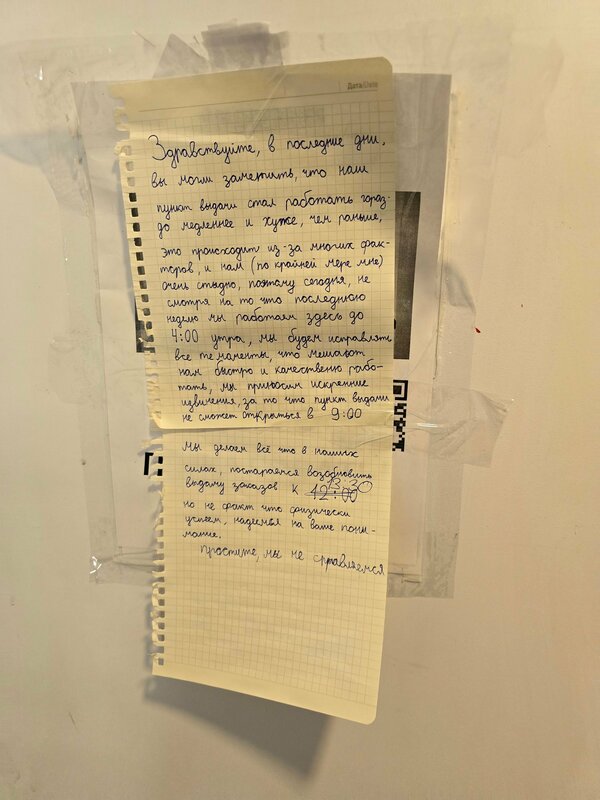 Дата/Date
Здравствуйте, в последние дни,
вы могли заметить, что наш
пункт выдачи стал работать гораз-
до медленнее и хуже, чем раньше,
это происходит из-за многих фак-
торов, и нам (по крайней мере мне)
очень стыдно, поэтому сегодня, не
смотря на то что последнюю
неделю мы работаем здесь до
4:00 утра, мы будем исправлять
все те моменты, что мешают
нам быстро и качественно рабо-
тать, мы приносим искренние
извинения, за то что пункт выдачи
не сможет открыться в 9:00
мы делаем всё что в наших
силах, постараемся возобновить
13:30
выдачу заказов к 12:00
но не факт что физически
успеем, надеемся на ваше пони-
мание.
Простите, мы не справляемся